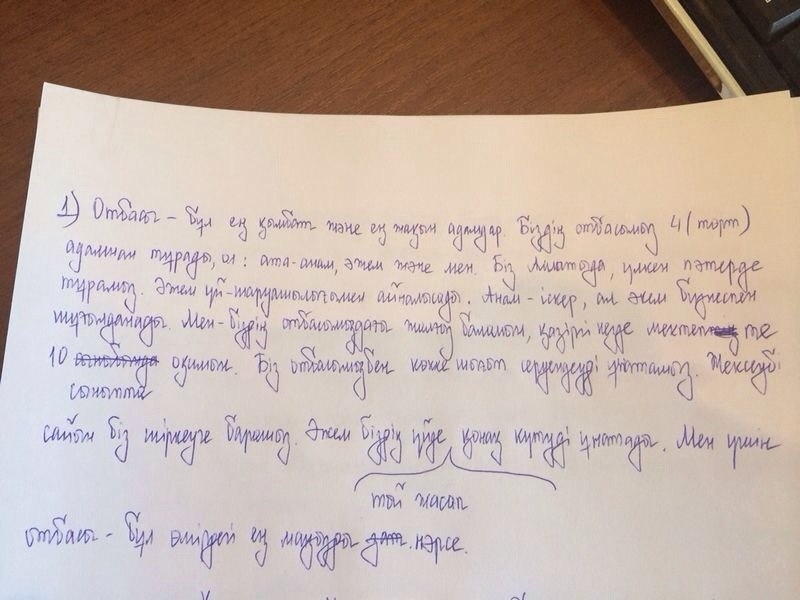 1) Отбасы – бұл ең қымбат және ең жақын адамдар. Біздің отбасымыз 4 (төрт)
адамнан тұрады, ол: ата-анам, әжем және мен. Біз Алматыда, үлкен пәтерде
тұрамыз. Әжем үй-шаруашылығымен айналысады. Анам – іскер, ал әкем бизнеспен
шұғылданады. Мен – біздің отбасымыздағы жалғыз баламын, қазіргі кезде мектепте
10 оқимын. Біз отбасымызбен көкке шығып серуендеуді ұнатамыз. Жексенбі
сыныпта
сайын біз шіркеуге барамыз. Әжем біздің үйде қонақ күтуді ұнатады. Мен үшін
той жасап
отбасы – бұл өмірдегі ең маңызды нәрсе.